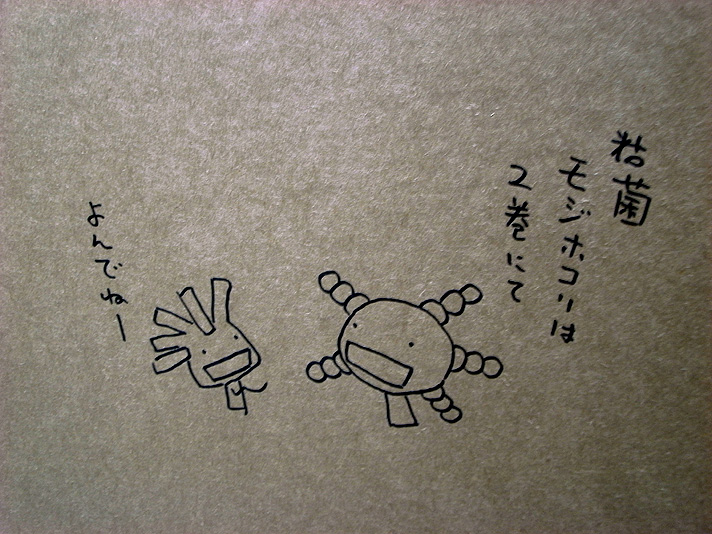 粘菌
モジホコリは
2巻にて
よんでねー